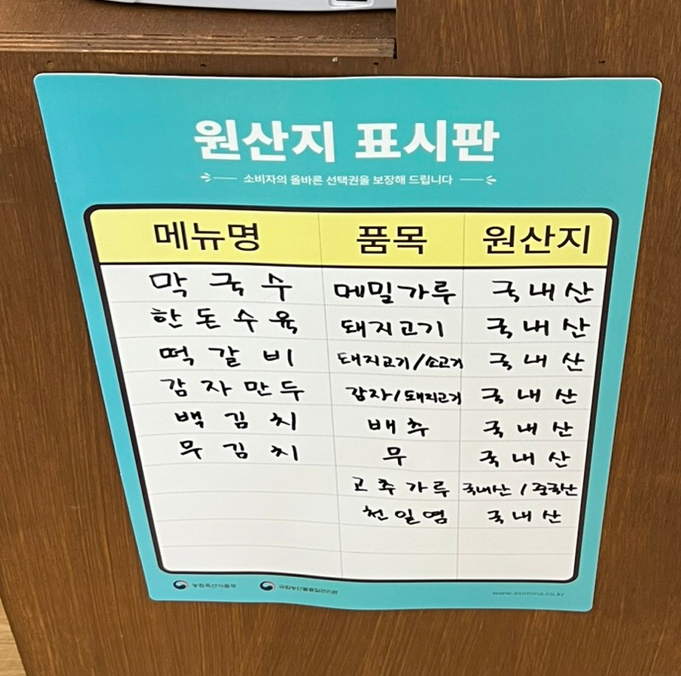 원산지 표시판
소비자의 올바른 선택권을 보장해 드립니다
메뉴명 품목 원산지
막국수 메밀가루 국내산
한돈수육 돼지고기 국내산
떡갈비 돼지고기/소고기 국내산
감자만두 감자/돼지고기 국내산
백김치 배추 국내산
무김치 무 국내산
고추가루 국내산/중국산
천일염 국내산
농림축산식품부 국립농산물품질관리원